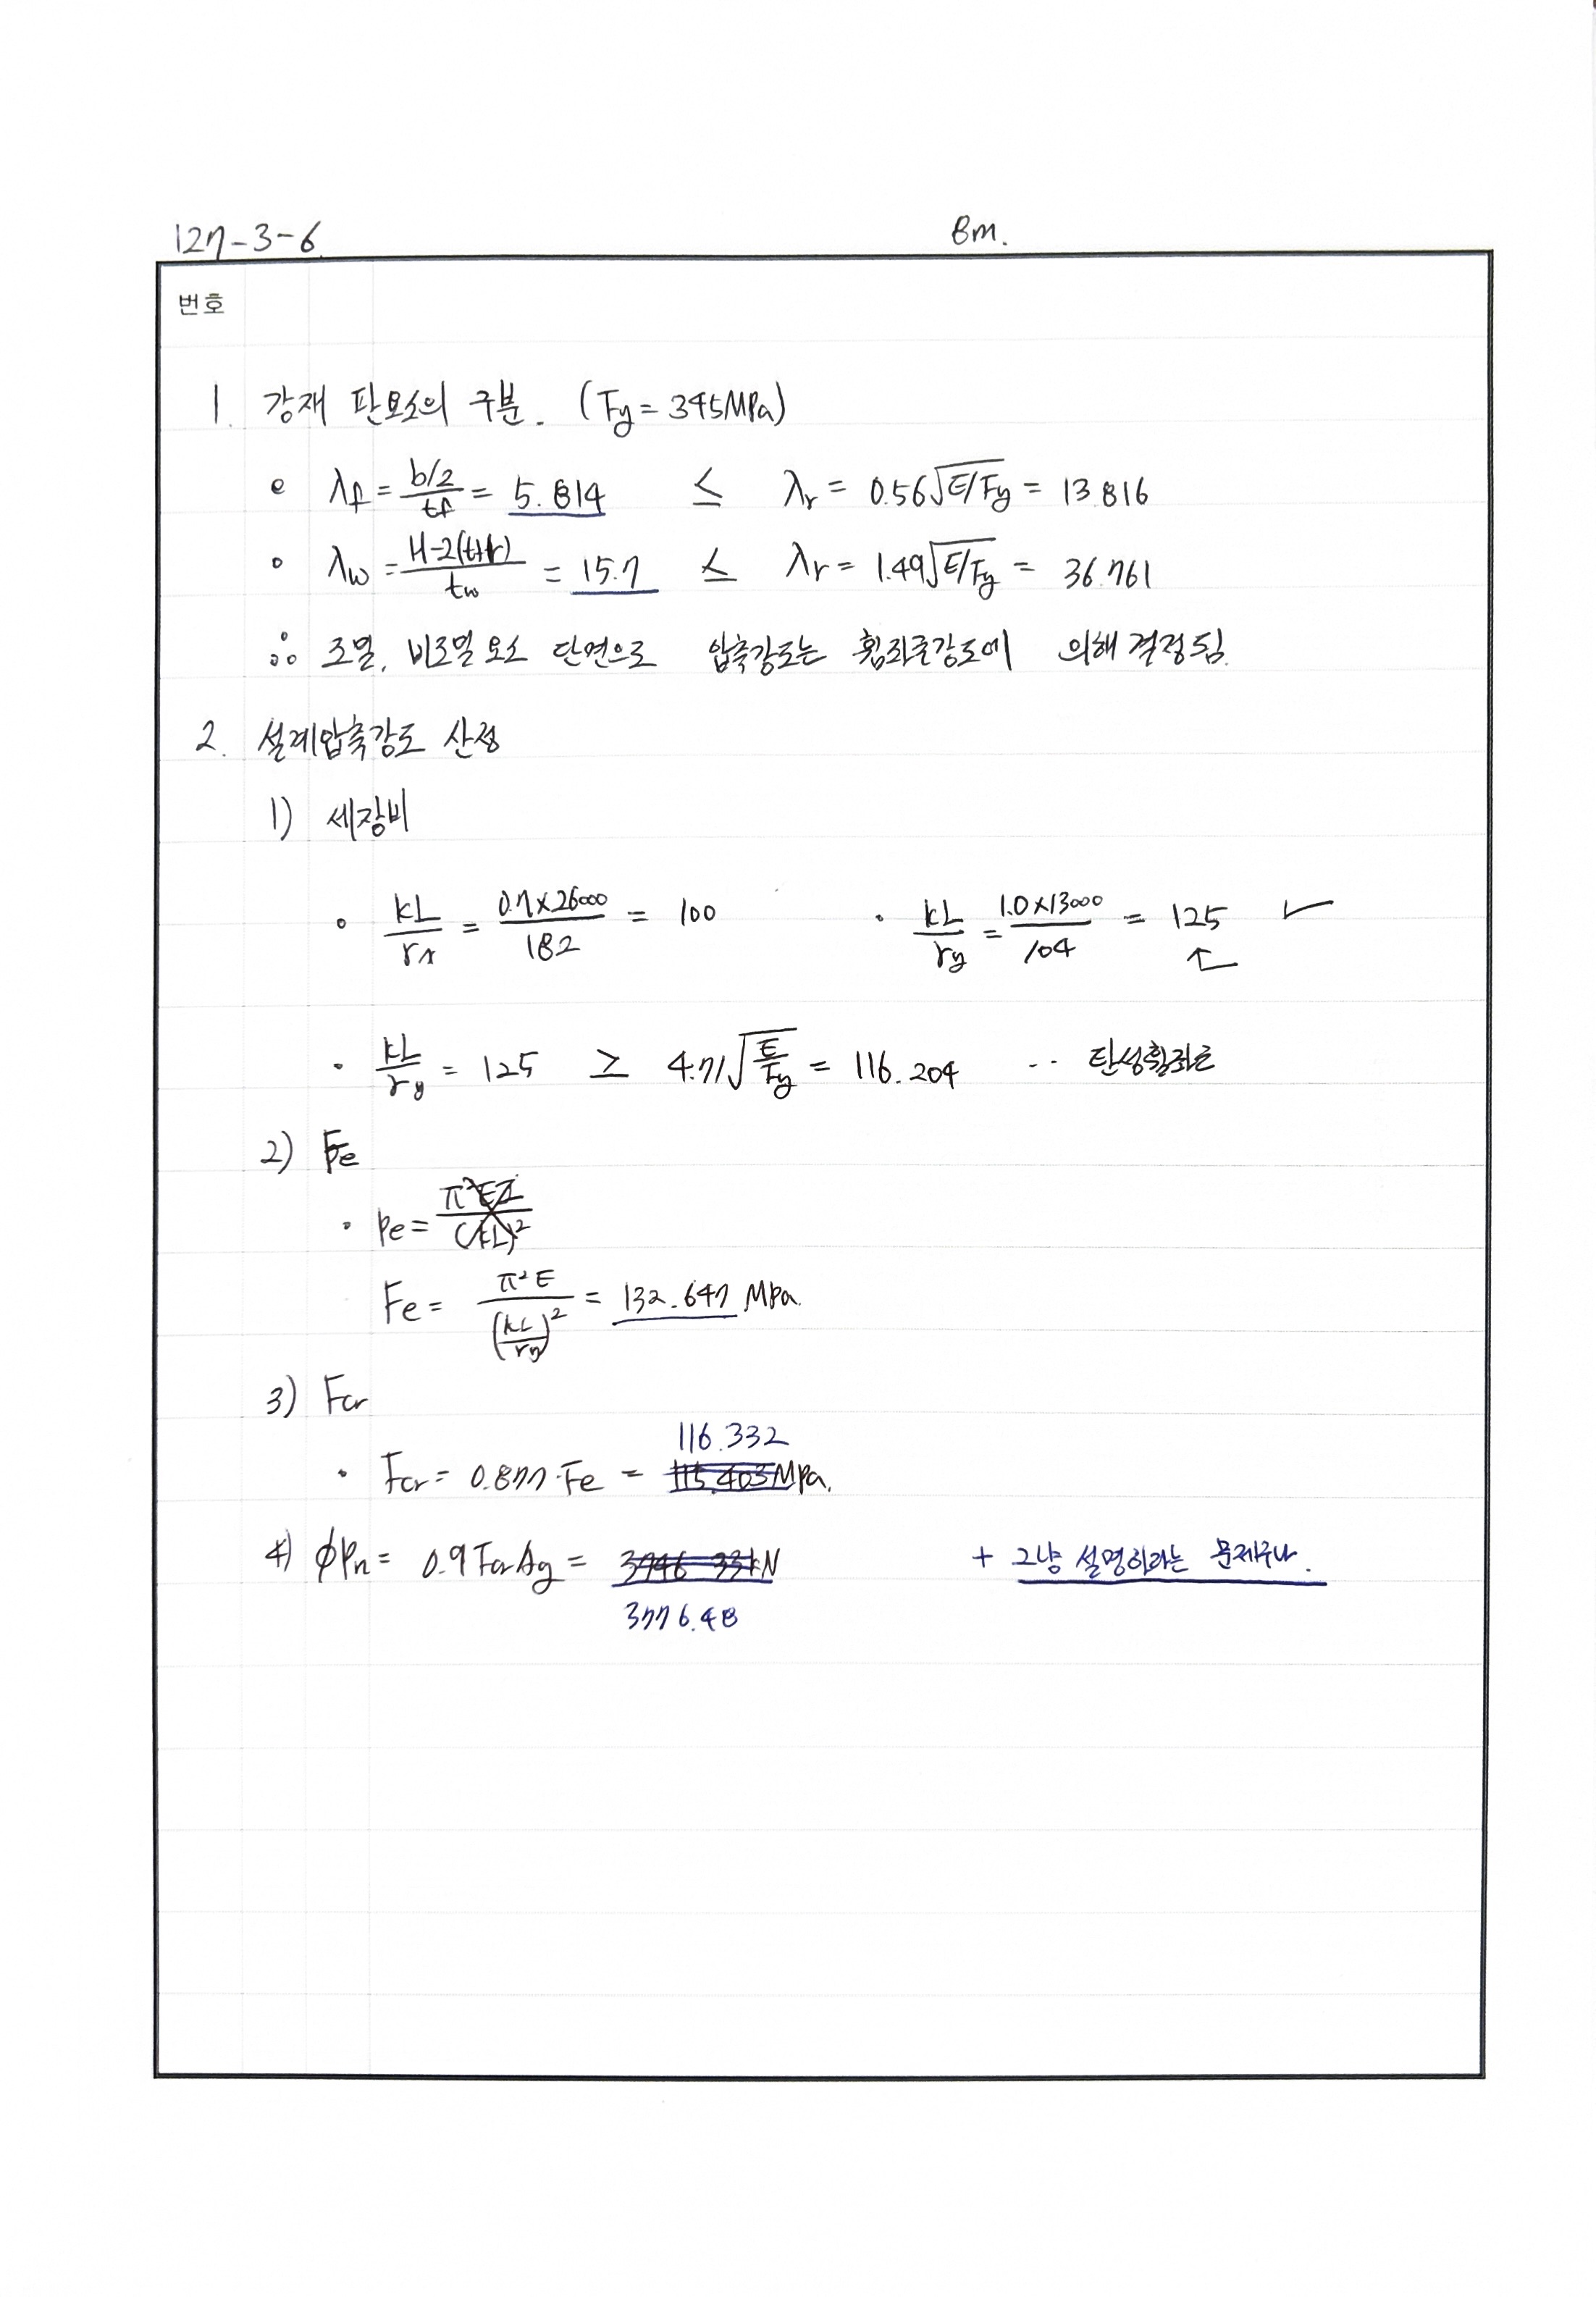 127-3-6. 8m.
번호
1. 강재 판요소의 구분. (Fy = 345MPa)
∘ λf = (b/2)/tf = 5.814 ≤ λr = 0.56√(E/Fy) = 13.816
∘ λw = (H-2(t+r))/tw = 15.7 ≤ λr = 1.49√(E/Fy) = 36.761
∴ 조밀, 비조밀 요소 단면으로 압축강도는 휨좌굴강도에 의해 결정됨.
2. 설계압축강도 산정
1) 세장비
∘ kL/rx = (0.7×26000)/182 = 100 · kL/ry = (1.0×13000)/104 = 125 ✓
· kL/ry = 125 ≥ 4.71√(E/Fy) = 116.204 ‥ 탄성휨좌굴
2) Fe
· Pe = π²EI/(kL)²
Fe = π²E/(kL/ry)² = 132.647 MPa.
3) Fcr
116.332
· Fcr = 0.877·Fe = 115.403MPa.
4) φPn = 0.9 Fcr Ag = 3746.33kN + 그냥 설명하라는 문제구나.
3776.48